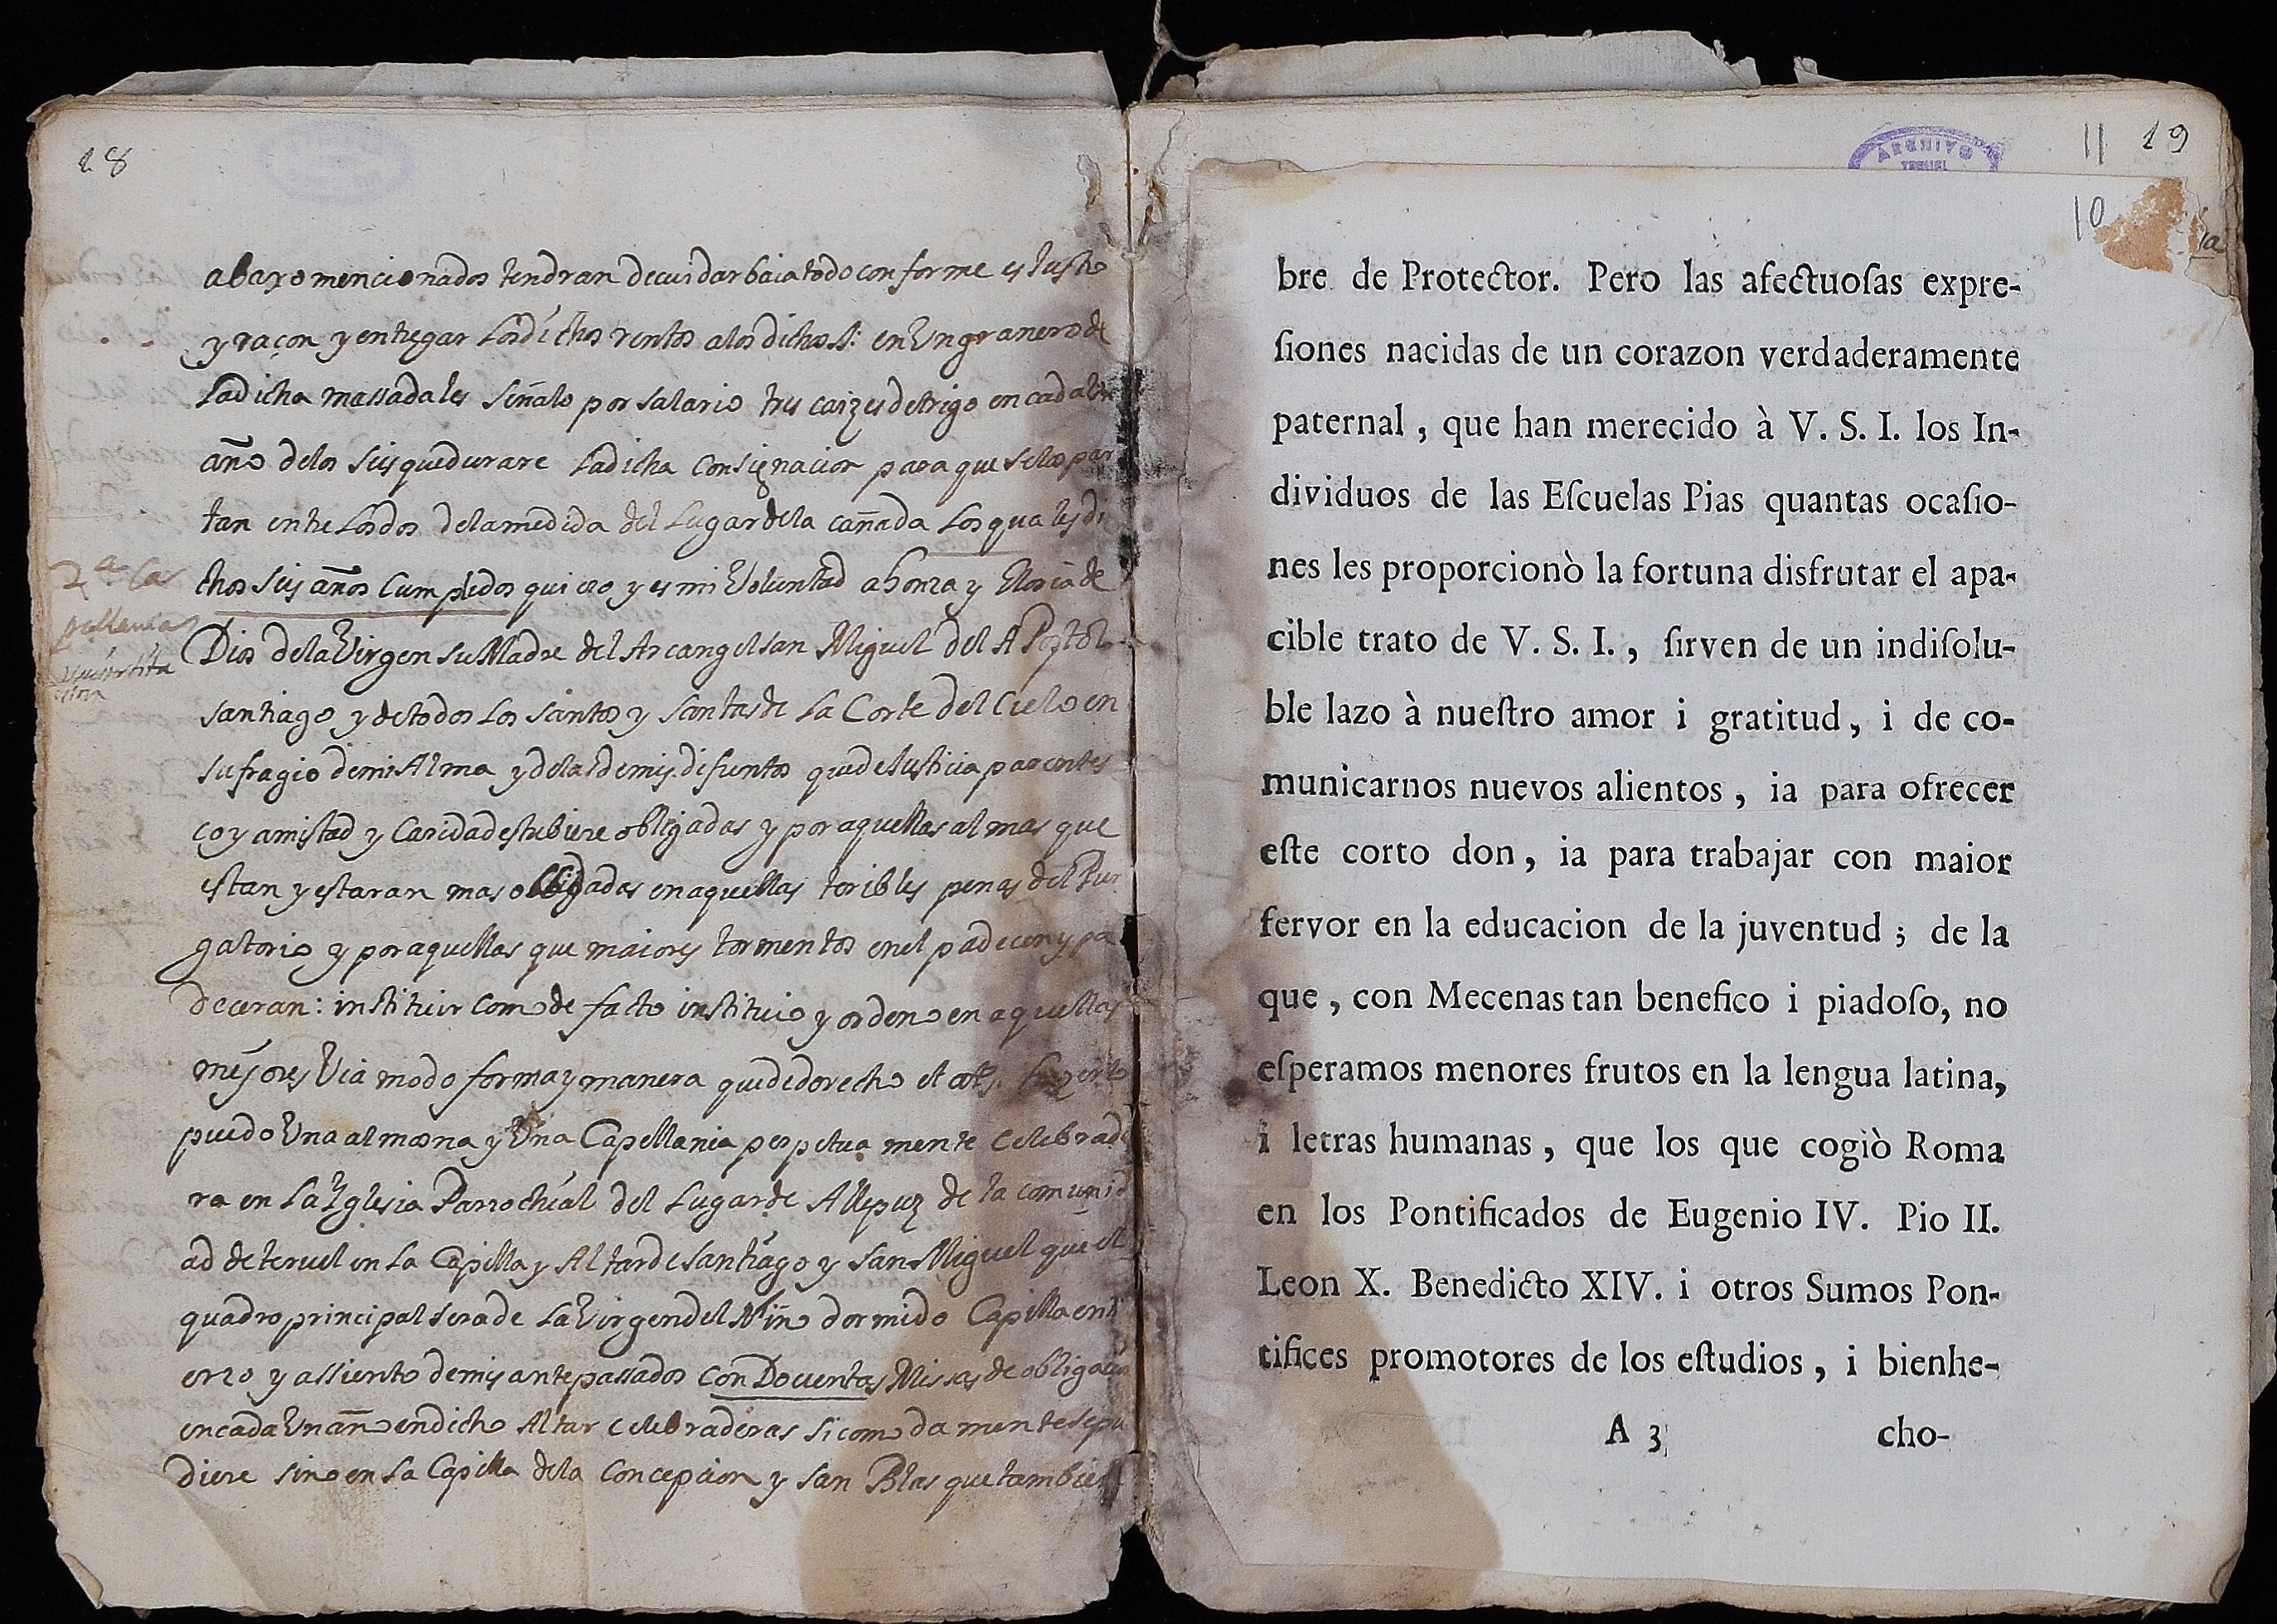 18
abaxo mencionados tendran de cuidar baia todo conforme es Justo
y raçon y entregar Los dichos rentos a los dichos S: en Un granero de
La dicha massada les señalo por salario tres caizes de trigo en cada Un
año de los seis que durare La dicha Consignacion para que se los par
tan entre Los dos de la medida del Lugar de la cañada Los quales di
chos seis años Cumplidos quiero y es mi Voluntad a honra y Gloria de
2ª Ca
pellania
Dios de la Virgen su Madre del Arcangel san Miguel del APostol
santiago y de todos Los santos y santas de La Corte del Cielo en
sufragio de mi Alma y de las de mis difuntos que de Justicia parentes
co y amistad y Caridad estubiere obligadas y por aquellas almas que
estan y estaran mas obligadas en aquellas teribles penas del Pur
gatorio y por aquellas que maiores tormentos en el padecen y pa
deceran: instituir como de facto instituio y ordeno en aquellas
mejores Via modo forma y manera que de derecho et als
puedo Una almosna y Una Capellania perpetua mente Celebrade
ra en La Yglesia Parrochial del Lugar de Allepuz de la comunid
ad de teruel en La Capilla y Altar de santiago y san Miguel que el
quadro principal sera de La Virgen del Niño dormido Capilla enti
erro y assiento de mis antepassados Con Docientas Missas de obligacion
en cada Un año en dicho Altar Celebraderas si comoda mente se pu
diere sino en La Capilla de la Concepcion y san Blas que tambien
11 19
ARCHIVO
TERUEL
10
bre de Protector. Pero las afectuoſas expre-
ſiones nacidas de un corazon verdaderamente
paternal, que han merecido à V. S. I. los In-
dividuos de las Eſcuelas Pias quantas ocaſio-
nes les proporcionò la fortuna disfrutar el apa-
cible trato de V. S. I., ſirven de un indiſolu-
ble lazo à nueſtro amor i gratitud, i de co-
municarnos nuevos alientos, ia para ofrecer
eſte corto don, ia para trabajar con maior
fervor en la educacion de la juventud; de la
que, con Mecenas tan benefico i piadoſo, no
eſperamos menores frutos en la lengua latina,
i letras humanas, que los que cogiò Roma
en los Pontificados de Eugenio IV. Pio II.
Leon X. Benedicto XIV. i otros Sumos Pon-
tifices promotores de los eſtudios, i bienhe-
A 3 cho-